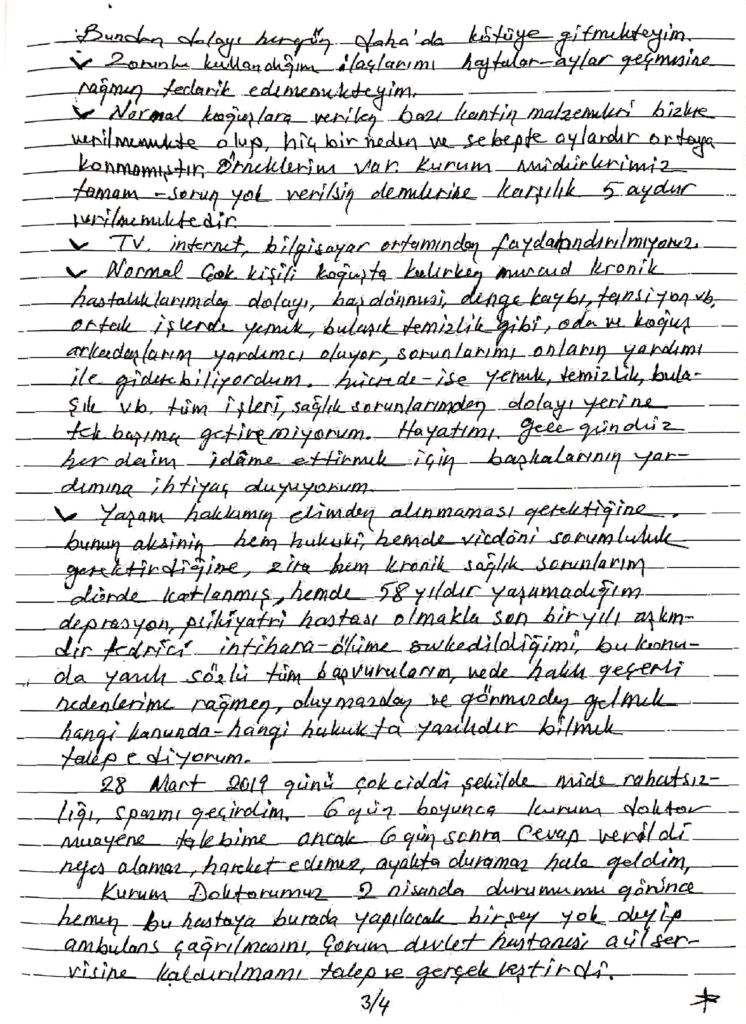 Bundan dolayı hergün daha'da kötüye gitmekteyim.
✓ Zorunlu kullandığım ilaçlarımı haftalar-aylar geçmesine
rağmen tedarik edememekteyim.
✓ Normal koğuşlara verilen bazı kantin malzemeleri bizlere
verilmemekte olup, hiç bir neden ve sebepte aylardır ortaya
konmamıştır, örneklerim var. Kurum müdürlerimiz
tamam - sorun yok verilsin demelerine karşılık 5 aydır
verilmemektedir.
✓ TV. internet, bilgisayar ortamından faydalandırılmıyoruz.
✓ Normal Çok kişili koğuşta kalırken mevcud kronik
hastalıklarımdan dolayı, başdönmesi, denge kaybı, tansiyon vb.
ortak işlerde yemek, bulaşık temizlik gibi, oda ve koğuş
arkadaşlarım yardımcı oluyor, sorunlarımı onların yardımı
ile giderebiliyordum. hücrede-ise yemek, temizlik, bula-
şık vb. tüm işleri, sağlık sorunlarımdan dolayı yerine
tek başıma getiremiyorum. Hayatımı. gece gündüz
her daim idâme ettirmek için başkalarının yar-
dımına ihtiyaç duyuyorum.
✓ Yaşam hakkımın elimden alınmaması gerektiğine.
bunun aksinin hem hukuki, hemde vicdâni sorumluluk
gerektirdiğine, zira hem kronik sağlık sorunlarım
dörde katlanmış, hemde 58 yıldır yaşamadığım
depresyon, psikiyatri hastası olmakla son bir yılı aşkın-
dır tedrici intihara-ölüme sevkedildiğimi, bu konu-
da yazılı sözlü tüm başvurularım, vede haklı geçerli
nedenlerime rağmen, duymazdan ve görmezden gelmek
hangi kanunda-hangi hukukta yazılıdır bilmek
talep ediyorum.
28 Mart 2019 günü çok ciddi şekilde mide rahatsız-
lığı, spazmı geçirdim. 6 gün boyunca kurum doktor
muayene talebime ancak 6 gün sonra Cevap verildi
nefes alamaz, hareket edemez, ayakta duramaz hale geldim,
Kurum Doktorumuz 2 nisanda durumumu görünce
hemen bu hastaya burada yapılacak birşey yok deyip
ambulans çağrılmasını, Çorum devlet hastanesi acil ser-
visine kaldırılmamı talep ve gerçekleştirdi.
3/4 *